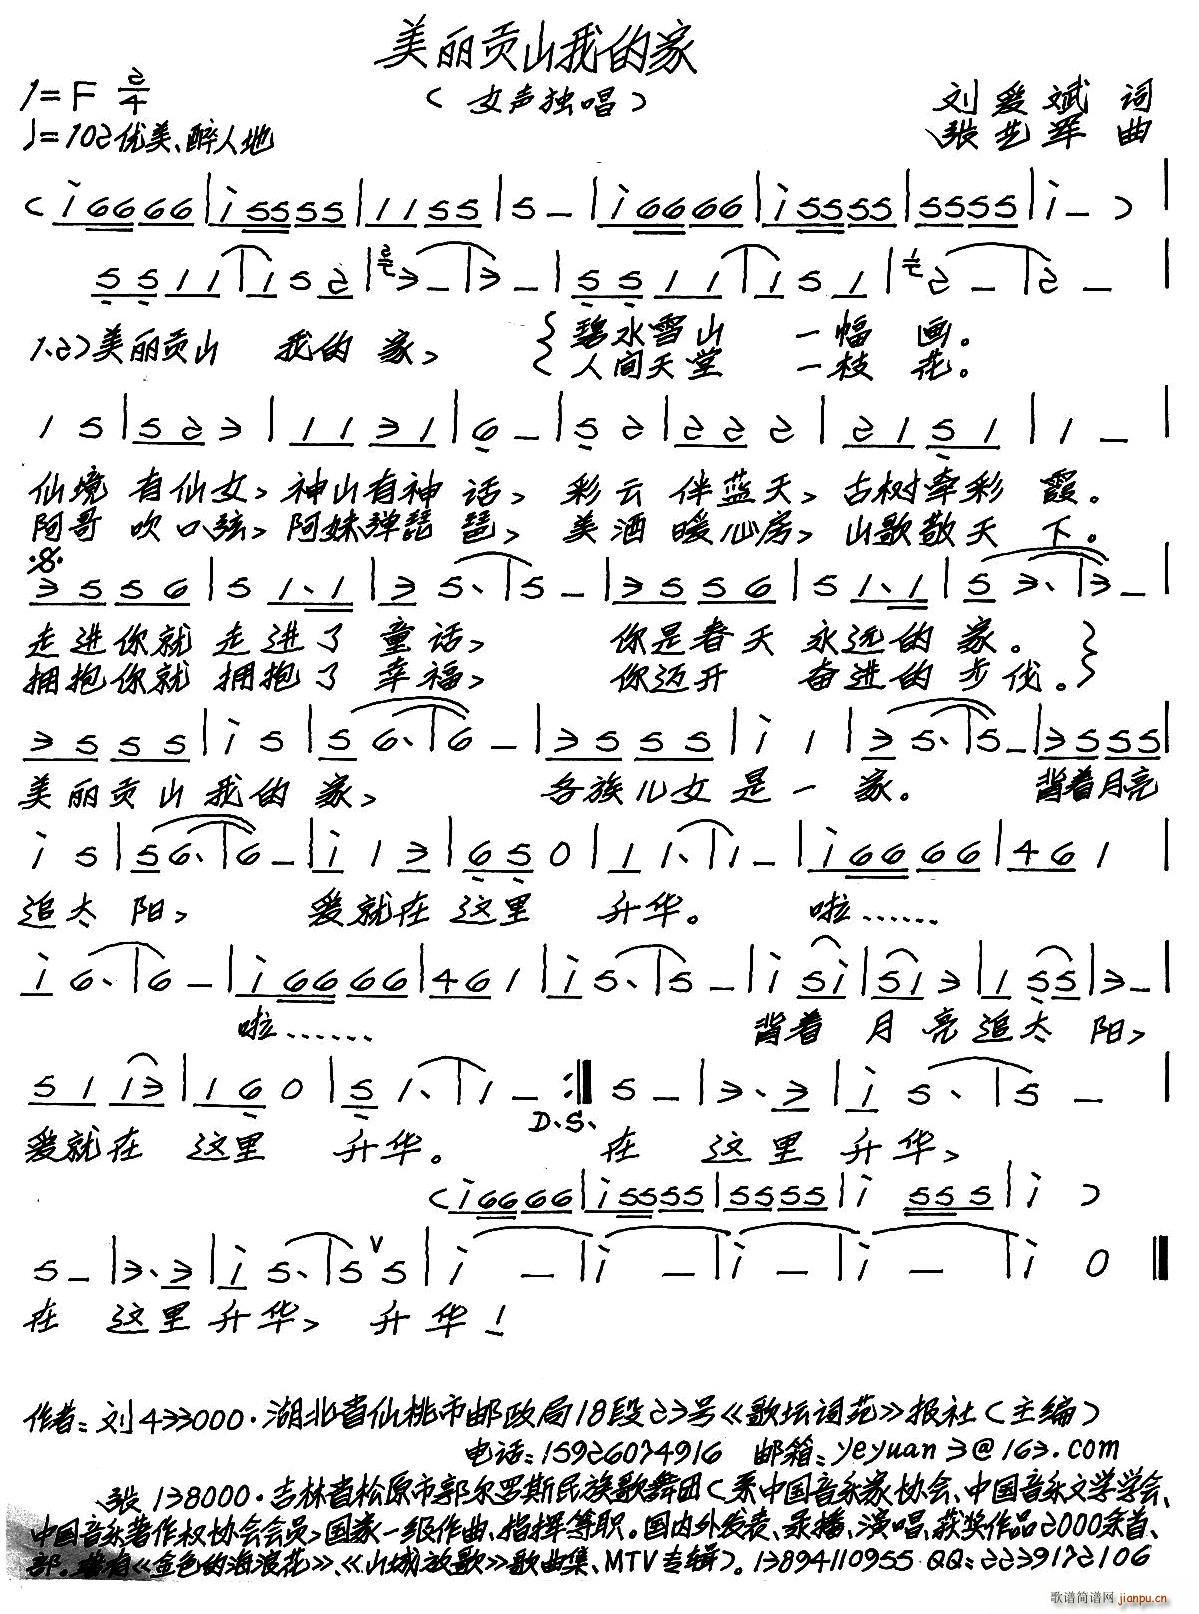 美丽贡山我的家
1=F 2/4
(女声独唱)
刘爱斌 词
♩=102优美、醉人地
张艺军 曲
(i6666|i5555|1155|5-|i6666|i5555|5555|i-)|
5511|152|3-|3-|5511|151|2-|2-|
1.2)美丽贡山 我的 家, {碧水雪山 一幅 画。
人间天堂 一枝 花。
15|523|1131|6-|52|222|2151|1-|
仙境 有仙女, 神山有神 话, 彩云 伴蓝天, 古树牵彩 霞。
阿哥 吹口弦, 阿妹弹琵 琶, 美酒 暖心房, 山歌敬天 下。
3556|51.1|35.|5-|3556|51.1|53.|3-|
走进你就 走进了 童话, 你是春天 永远的 家。}
拥抱你就 拥抱了 幸福, 你迈开 奋进的 步伐。}
3555|i5|56.|6-|3555|i1|35.|5-|3555|
美丽贡山我的 家, 各族儿女是一 家。 背着月亮
i5|56.|6-|i13|650|11.|1-|i6666|461|
追太 阳, 爱就在 这里 升华。 啦……
i6.|6-|i6666|461|i5.|5-|i5i|513|155|3-|
啦…… 背着 月 亮追太 阳,
5113|160|51.|1-:‖5-|3.3|i5.|5-|
D.S.
爱就在 这里 升华。 在 这里 升华,
(i6666|i5555|5555|i555|i)
5-|3.3|i5.|5∨5|i-|i-|i-|i-|i0‖
在 这里升华, 升华!
作者:刘433000·湖北省仙桃市邮政局18段23号《歌坛词苑》报社(主编)
电话:15926074916 邮箱:yeyuan3@163.com
张138000·吉林省松原市郭尔罗斯民族歌舞团(系中国音乐家协会、中国音乐文学学会、
中国音乐著作权协会会员,国家一级作曲、指挥等职。国内外发表、录播、演唱、获奖作品2000余首、
部。《金色的海浪花》、《山城放歌》歌曲集、MTV专辑)。13894110955 QQ:2239172106
歌谱简谱网
jianpu.cn